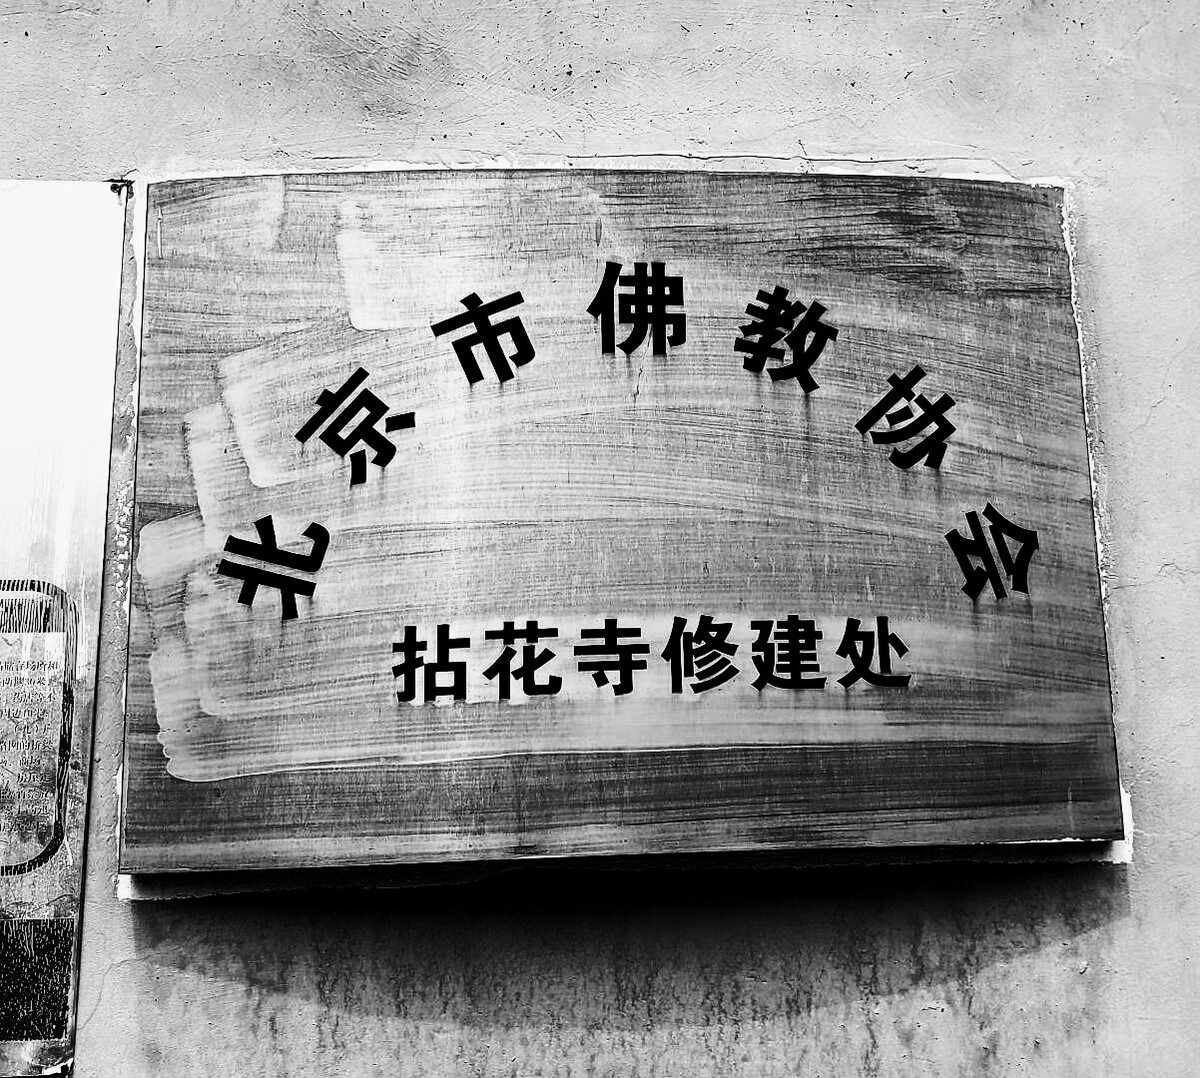 北京市佛教协会
拈花寺修建处